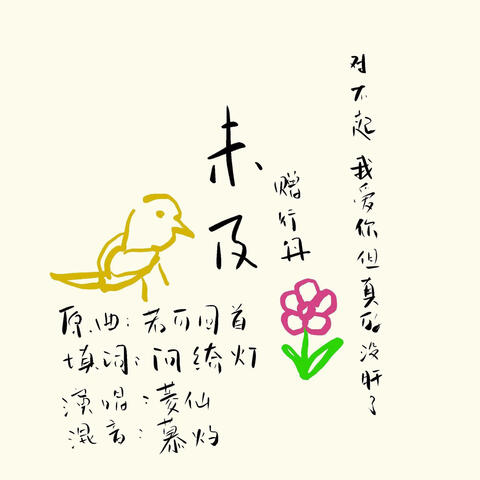 未及
赠行丹
对不起 我爱你但真的没肝了
原曲：若可回首
填词：阿绮灯
演唱：菱仙
混音：慕灼